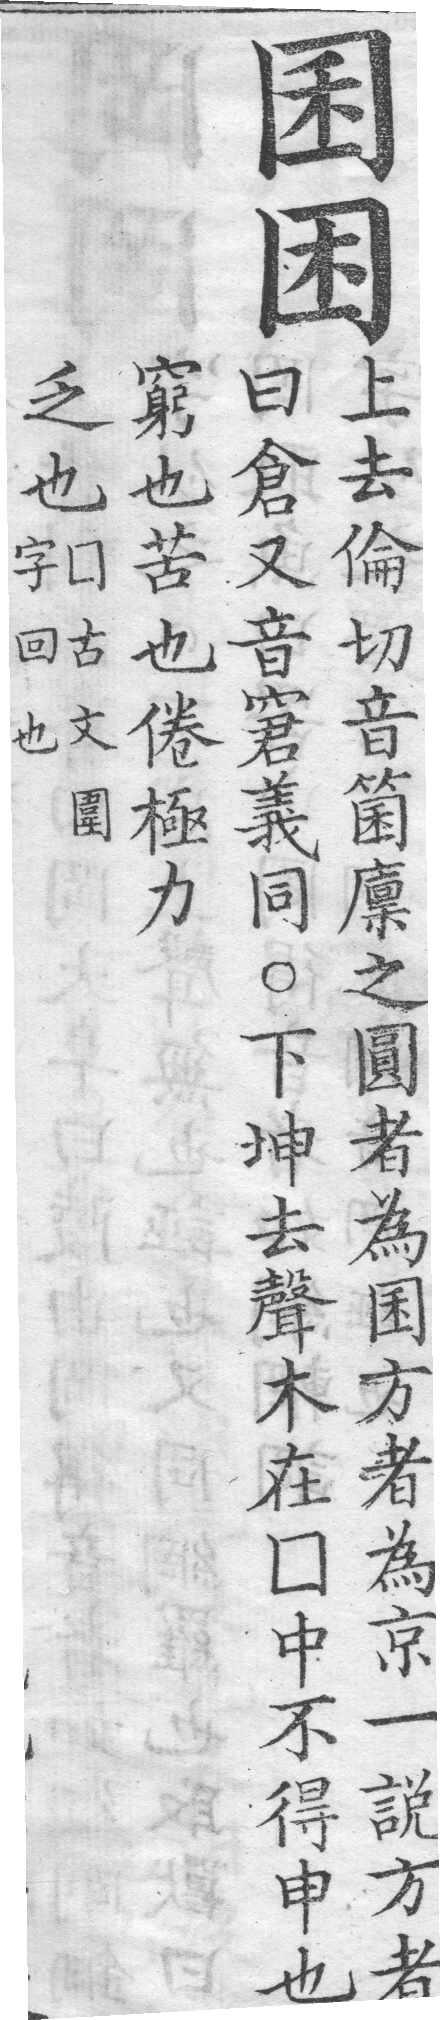 囷困
上去倫切音箘廩之圓者為囷方者為京一説方者
曰倉又音窘義同○下坤去聲木在囗中不得申也
窮也苦也倦極力
乏也囗古文圍
字回也